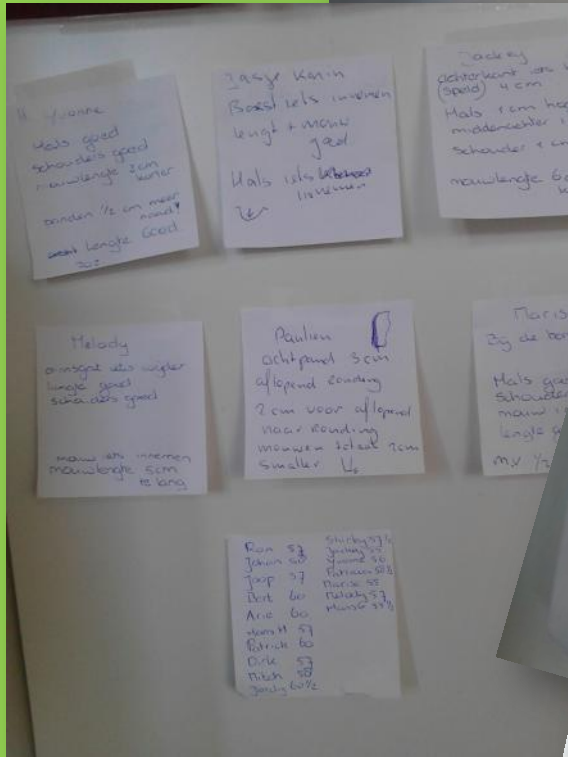 Yvonne
Hals goed
schouders goed
mouwlengte 2cm
korter
banden 1/2 cm meer
rond
lengte Good
Jasje Karin
Borst iets innemen
lengt + mouw
goed
Hals iets
innemen
Jackey
achterkant iets
(speld) 4 cm
Hals 1 cm
middenachter
schouder 1 cm
mouwlengte
Melody
iets wijder
lengte goed
schouders goed
mouw iets innemen
mouwlengte 5cm
te lang
Paulien
achtpand 3cm
aflopend ronding
2cm voor aflopend
naar ronding
mouwen totaal 2cm
smaller
Maris
Bij de
Hals goed
schouder
mouw
lengte
m.v. 1/2
Ron 57
Johan
Jaap 57
Bert 60
Arie 60
57
Patrick 60
Dirk 57
Mitch 58
Jordy 60 1/2
Jackey 55
Yvonne 56
Marise 55
Melody 57